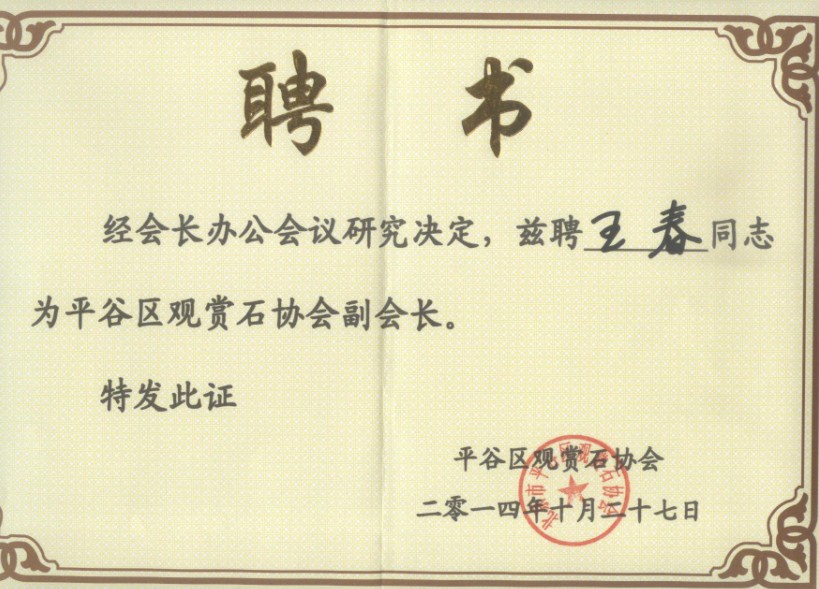 聘书
经会长办公会议研究决定，兹聘王春同志
为平谷区观赏石协会副会长。
特发此证
平谷区观赏石协会
二零一四年十月二十七日
北京市平谷区观赏石协会